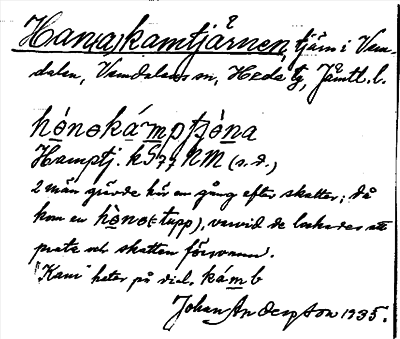 Hanakamtjärnen, tjärn i Vem-
dalen, Vemdalens sn, Hede tg, Jämtl. l.
hònokámptjòna
Hamptj. k 577 NM (s.d.)
2 män grävde här en gång efter skatter; då
kom en hòno (= tupp), varvid de lockades att
prata och skatten försvann.
"Kam" heter på dial. kámb
Johan Anderson 1935.